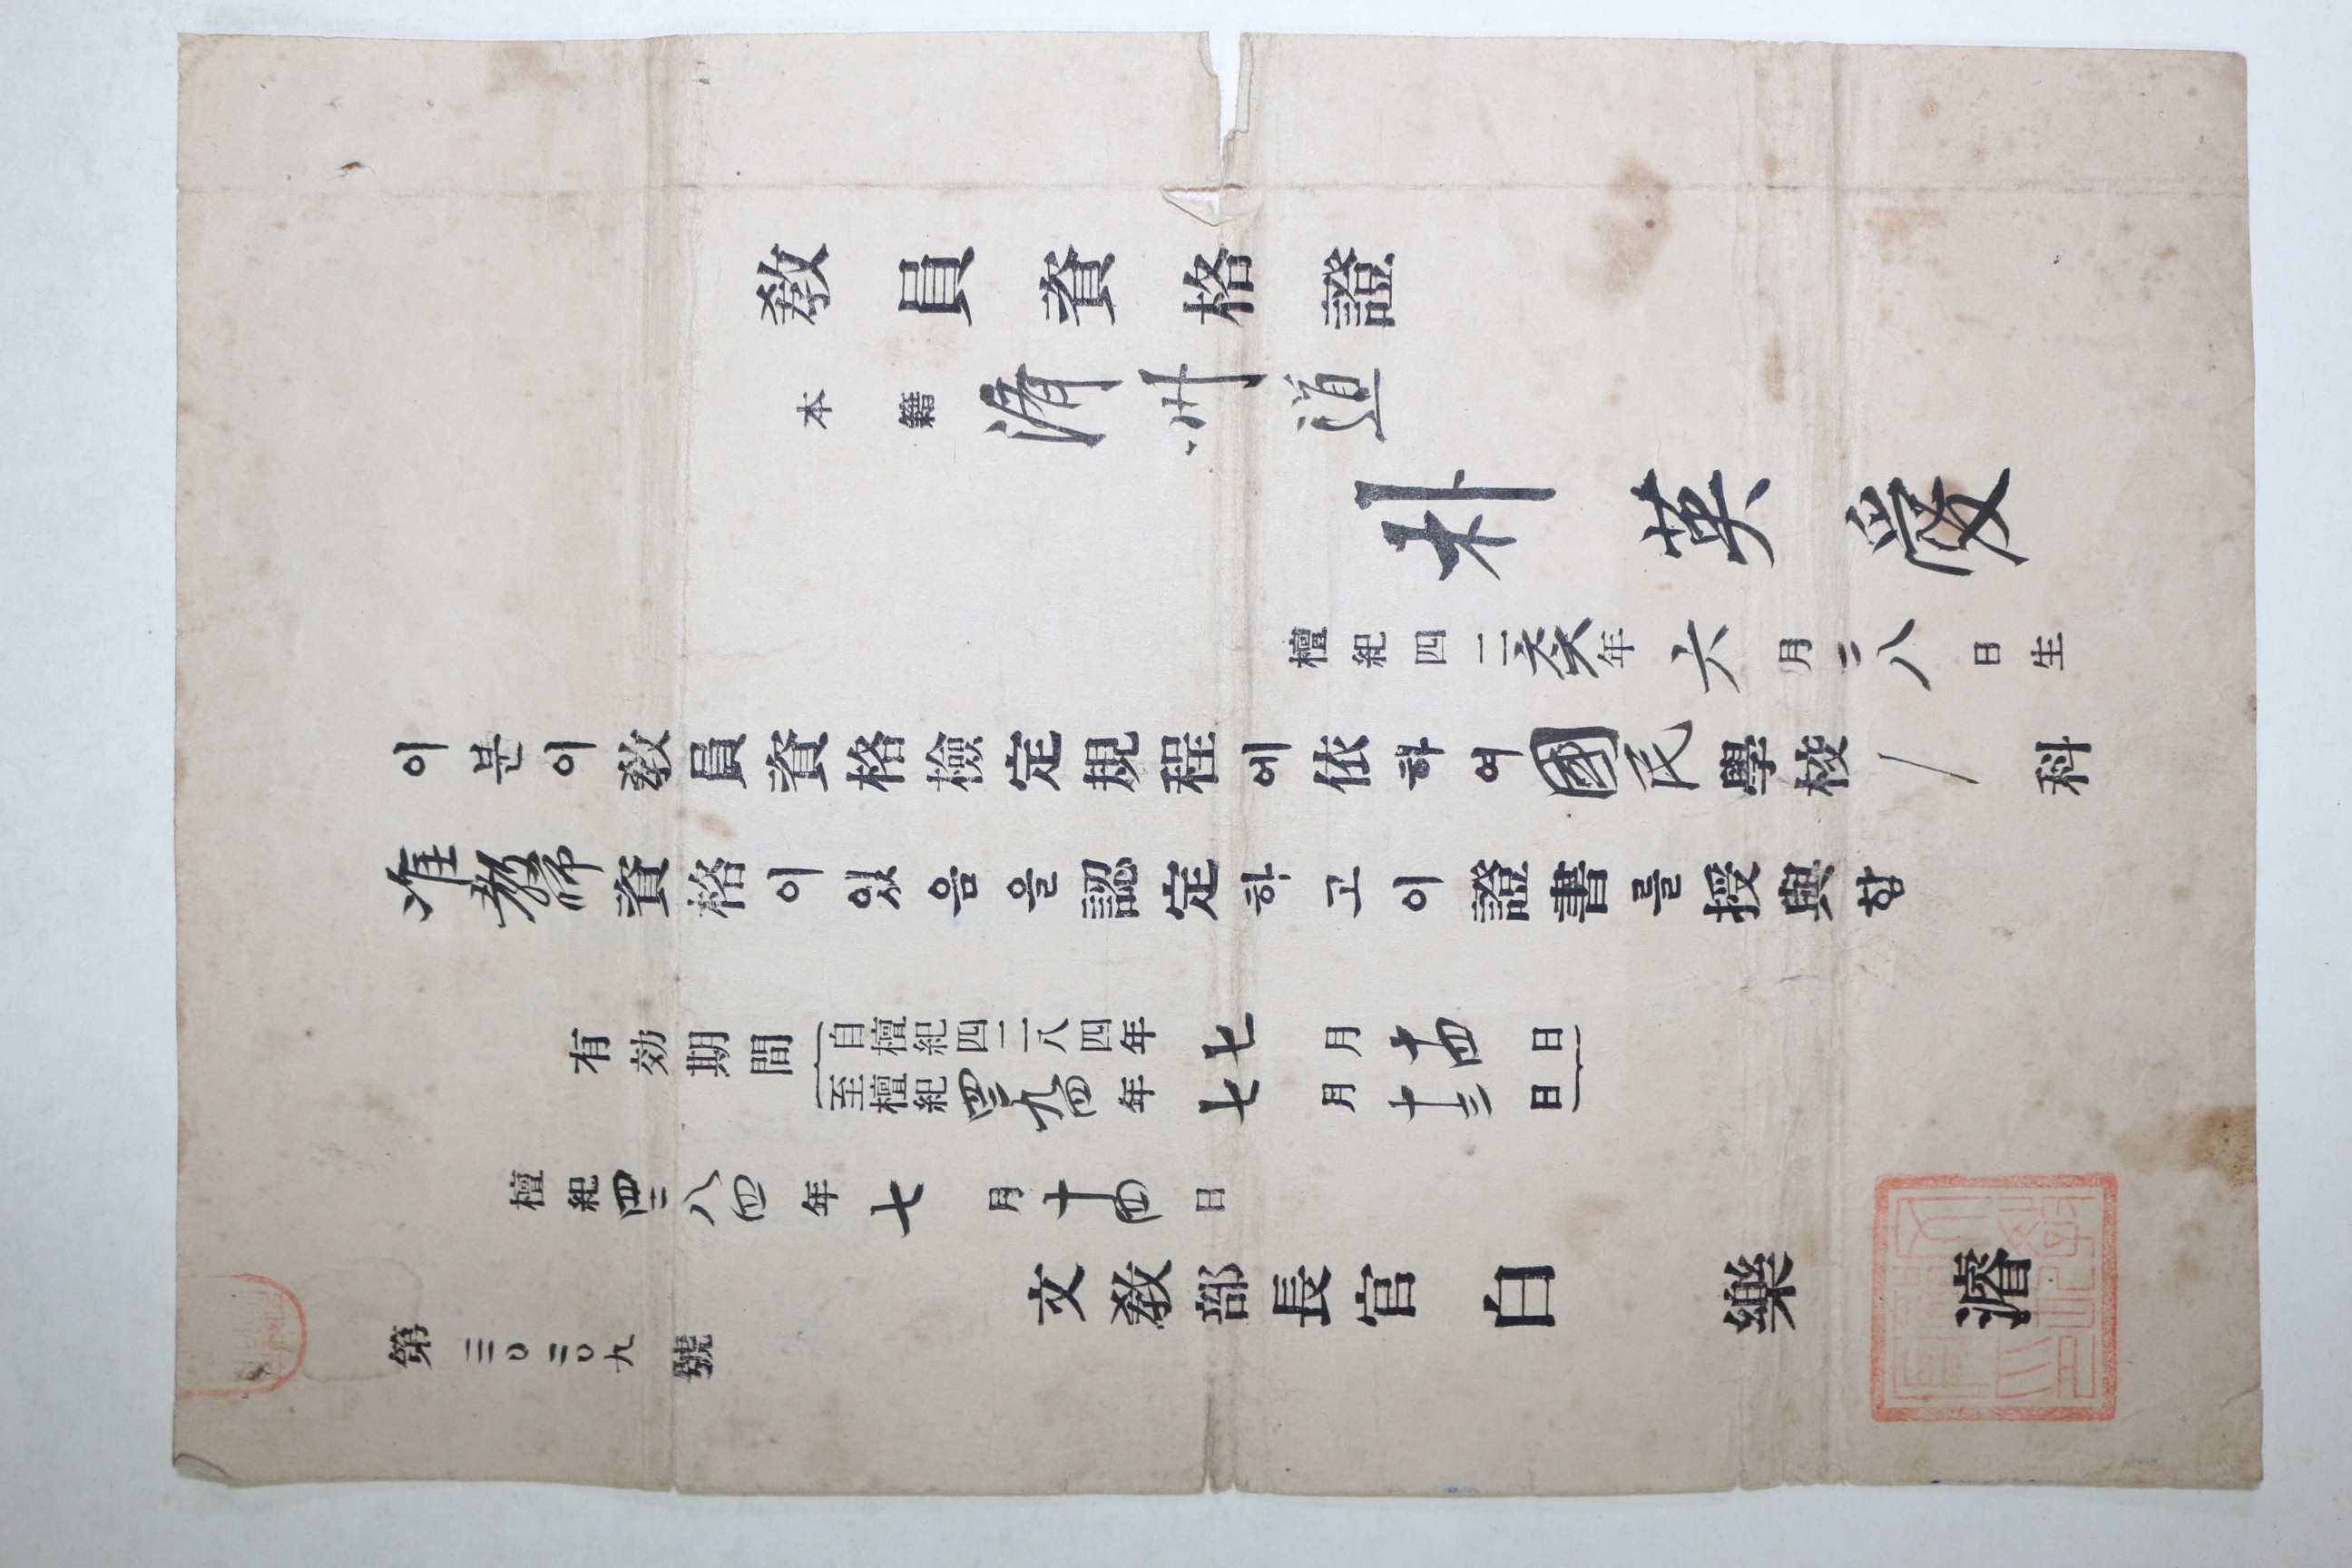 敎員資格證
本籍 濟州道
朴英愛
檀紀四二六六年六月二八日生
이분이敎員資格檢定規程에依하여國民學校 / 科
准敎師資格이있음을認定하고이證書를授與함
有効期間
自檀紀四二八四年七月十四日
至檀紀四二九四年七月十三日
檀紀四二八四年七月十四日
文敎部長官 白樂濬
第三〇二〇九號